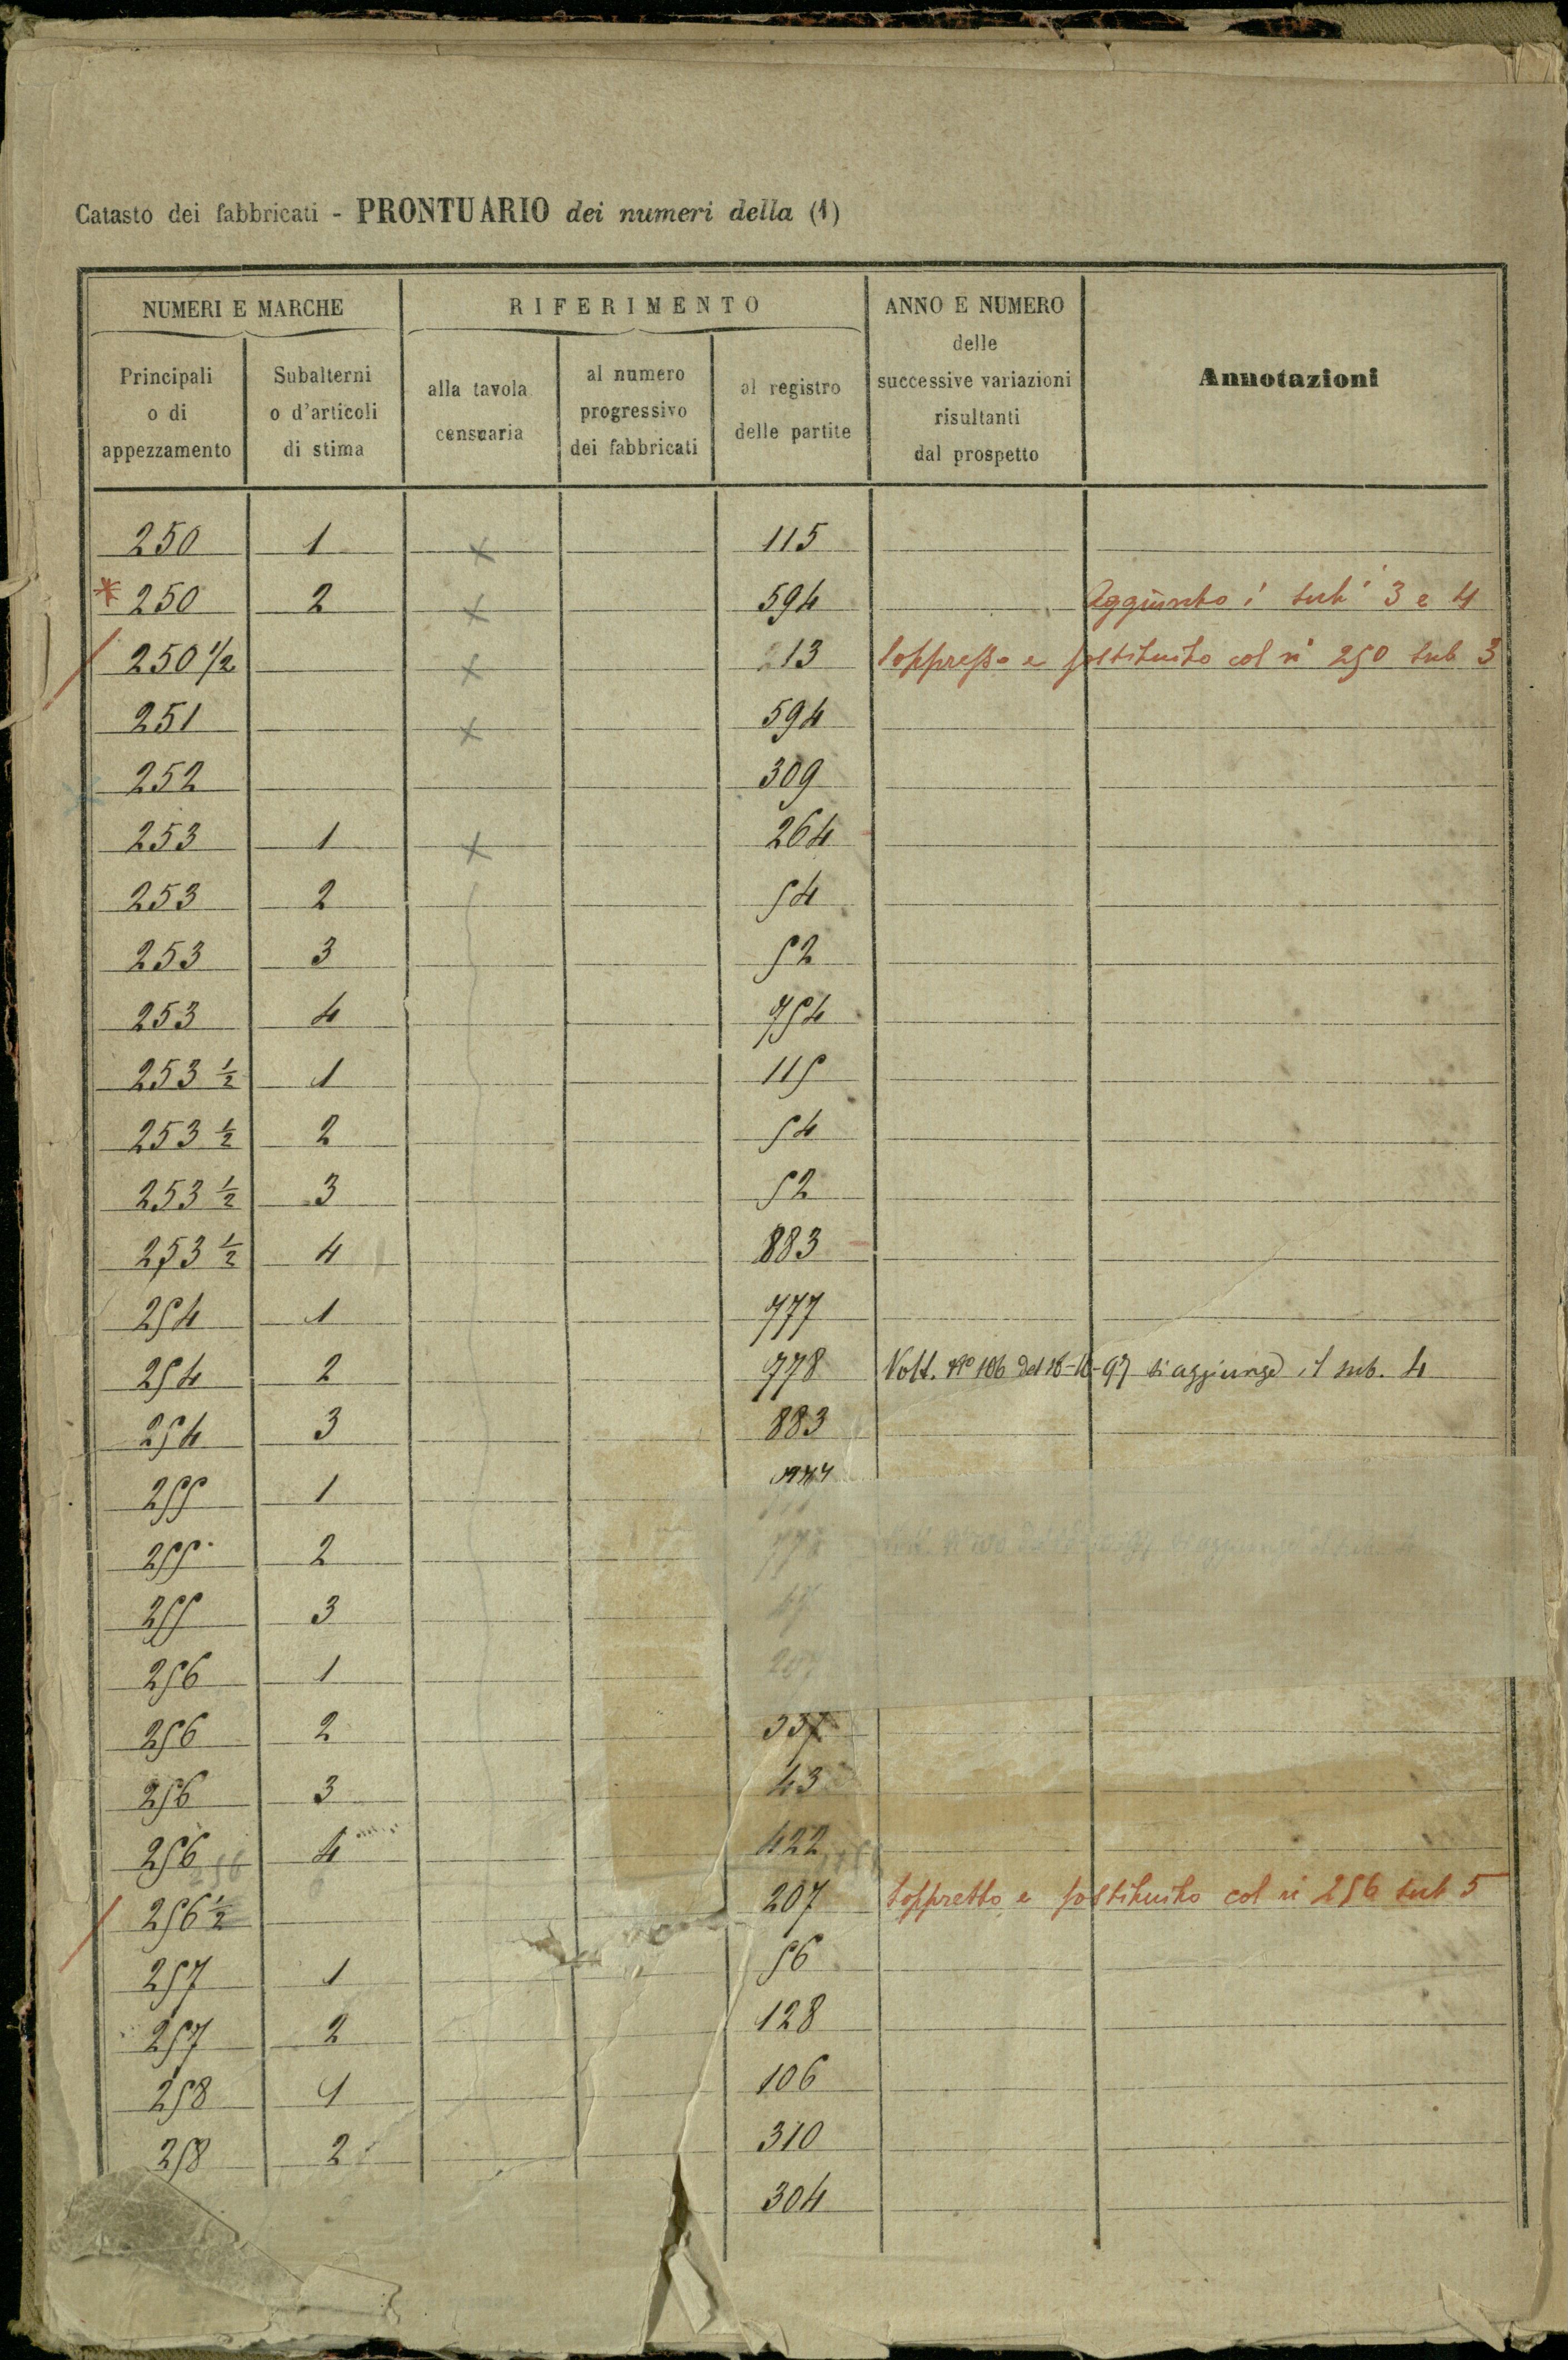 Catasto dei fabbricati - PRONTUARIO dei numeri della (1)
NUMERI E MARCHE
Principali o di appezzamento
Subalterni o d'articoli di stima
RIFERIMENTO
alla tavola censuaria
al numero progressivo dei fabbricati
al registro delle partite
ANNO E NUMERO delle successive variazioni risultanti dal prospetto
Annotazioni
250 1 x 115
* 250 2 x 594 Aggiunto i sub' 3 e 4
/ 250 ½ x 213 Soppresso e sostituito col n° 250 sub 3
251 x 594
252 309
253 1 x 264
253 2 54
253 3 52
253 4 754
253 ½ 1 115
253 ½ 2 54
253 ½ 3 52
253 ½ 4 883
254 1 777
254 2 778 Volt. N° 106 del -97 si aggiunge il sub. 4
254 3 883
255 1
255 2
255 3
256 1
256 2 337
256 3 43
256 4 422
/ 256 ½ 207 Soppresso e sostituito col n° 256 sub 5
257 1 56
257 2 128
258 1 106
258 2 310
304